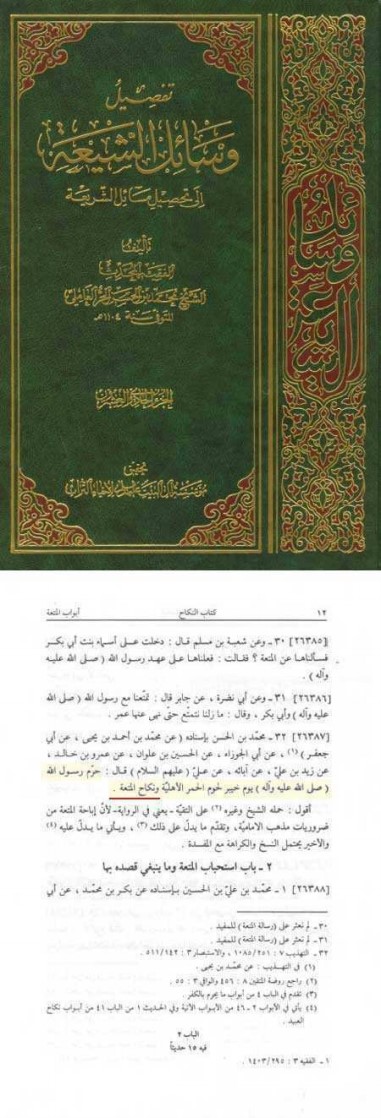 تفصيل
وسائل الشيعة
إلى تحصيل مسائل الشريعة
تأليف
الفقيه المحدث
الشيخ محمد بن الحسن الحر العاملي
المتوفى سنة ١١٠٤ هـ
الجزء الحادي والعشرون
تحقيق
مؤسسة آل البيت عليهم السلام لإحياء التراث
وسائل الشيعة
١٢ كتاب النكاح أبواب المتعة
[٢٦٣٨٥] ٣٠ ـ وعن شعبة بن مسلم قال : دخلت على أسماء بنت أبي بكر
فسألناها عن المتعة ؟ فقالت : فعلناها على عهد رسول الله ( صلى الله عليه
وآله ) .
[٢٦٣٨٦] ٣١ ـ وعن أبي نضرة ، عن جابر قال : تمتّعنا مع رسول الله ( صلى الله
عليه وآله ) وأبي بكر ، وقال : ما زلنا نتمتّع حتّى نهى عنها عمر .
[٢٦٣٨٧] ٣٢ ـ محمّد بن الحسن بإسناده ( عن محمّد بن أحمد بن يحيى ، عن أبي
جعفر ) (١) ، عن أبي الجوزاء ، عن الحسين بن علوان ، عن عمرو بن خالد ،
عن زيد بن عليّ ، عن آبائه ، عن عليّ ( عليهم السلام ) قال : حرّم رسول الله
( صلى الله عليه وآله ) يوم خيبر لحوم الحمر الأهليّة ونكاح المتعة .
أقول : حمله الشيخ وغيره (٢) على التقيّة ـ يعني في الرواية ـ لأنّ إباحة المتعة من
ضروريات مذهب الاماميّة ، وتقدّم ما يدلّ على ذلك (٣) ، ويأتي ما يدلّ عليه (٤)
والأخير يحتمل النسخ والكراهة مع المفسدة .
٢ ـ باب استحباب المتعة وما ينبغي قصده بها
[٢٦٣٨٨] ١ ـ محمّد بن عليّ بن الحسين بإسناده عن بكر بن محمّد ، عن أبي
٣٠ ـ لم نعثر على ( رسالة المتعة ) للمفيد .
٣١ ـ لم نعثر على ( رسالة المتعة ) للمفيد .
٣٢ ـ التهذيب ٧ : ٢٥١ / ١٠٨٥ ، والاستبصار ٣ : ١٤٢ / ٥١١ .
(١) في التهذيب : عن محمّد بن يحيى .
(٢) راجع روضة المتقين ٨ : ٤٥٦ والوافي ٣ : ٥٥ .
(٣) تقدم في الباب ٤ من أبواب ما يحرم بالكفر .
(٤) يأتي في الأبواب ٢ ـ ٤٦ من الأبواب الآتية وفي الحديث ١ من الباب ٤١ من أبواب نكاح
العبيد .
الباب ٢
فيه ١٥ حديثاً
١ ـ الفقيه ٣ : ٢٩٥ / ١٤٠٣ .